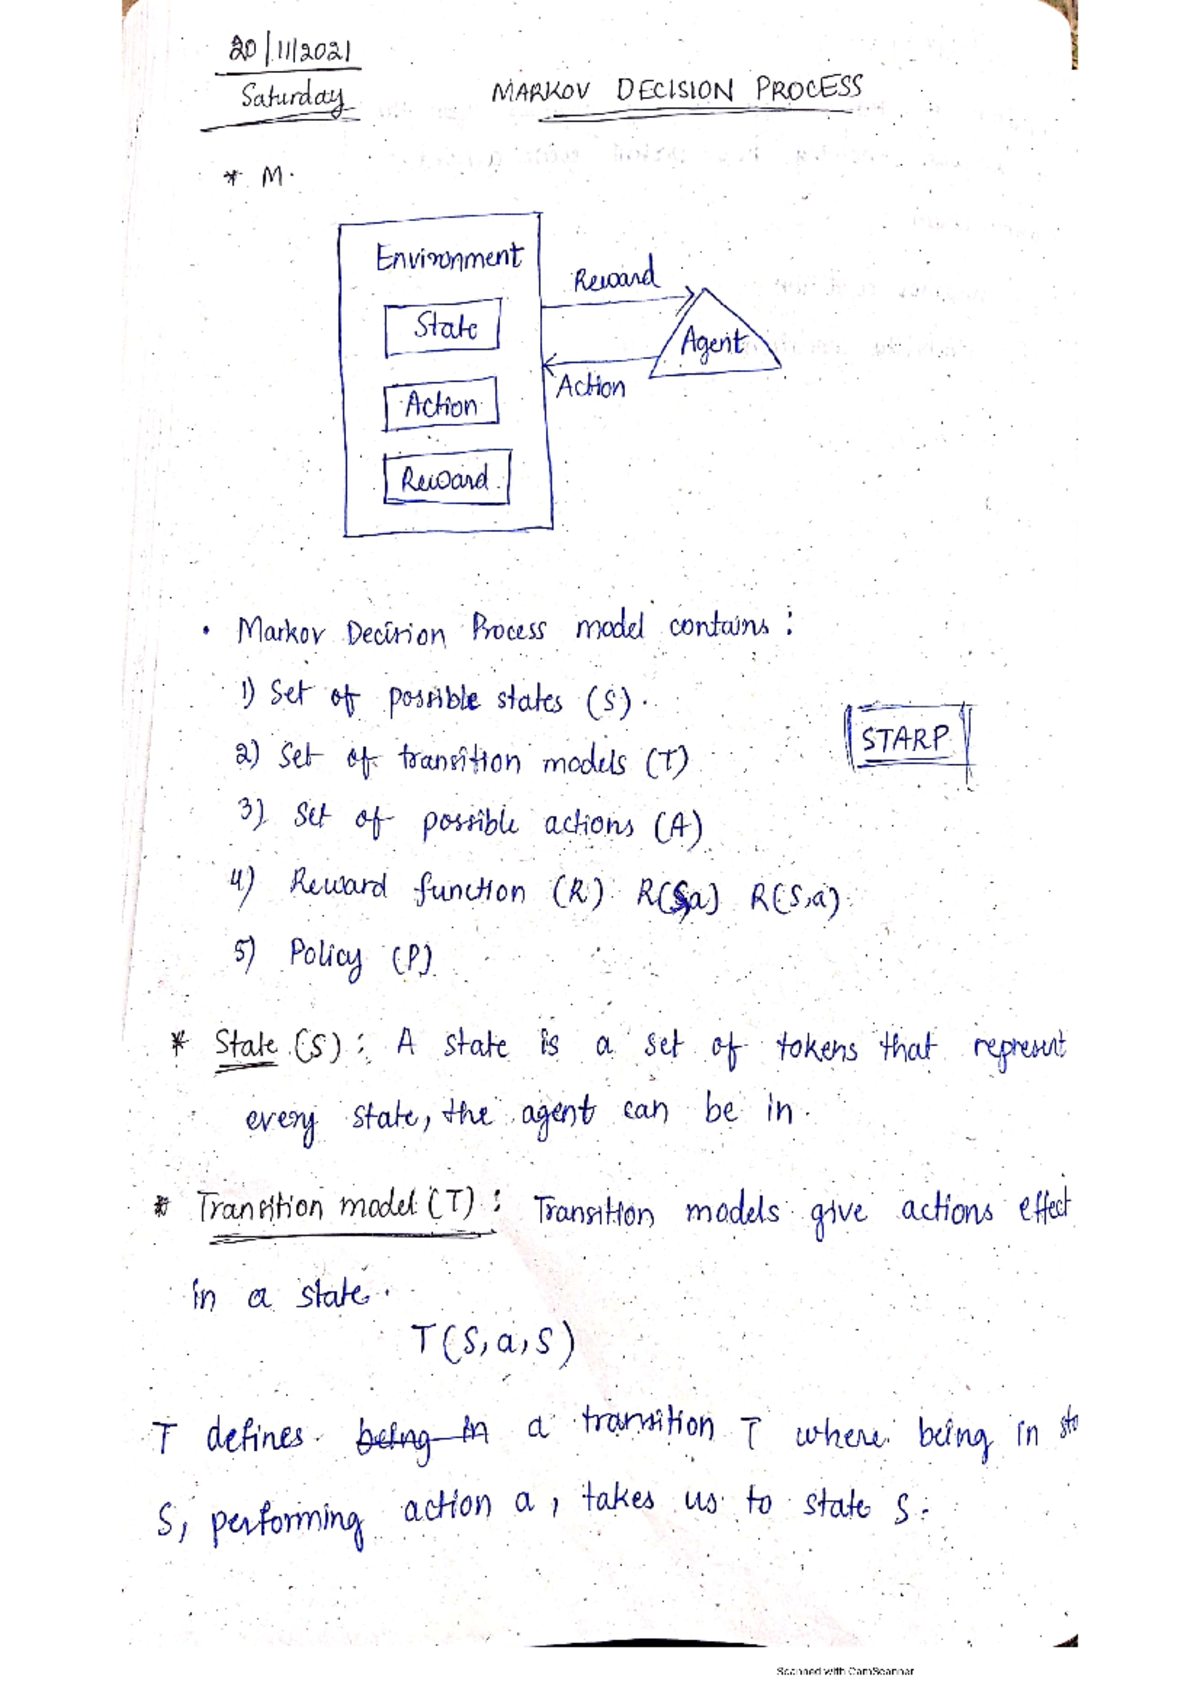 20/11/2021
Saturday
MARKOV DECISION PROCESS
* M.
Environment
State
Action
Reward
Reward
Agent
Action
• Markov Decision Process model contains :
1) Set of possible states (S).
2) Set of transition models (T)
STARP
3) Set of possible actions (A)
4) Reward function (R) R(S,a) R(S,a)
5) Policy (P)
* State (S) : A state is a set of tokens that represent
every state, the agent can be in.
* Transition model (T) : Transition models give actions effect
in a state.
T(S,a,S)
T defines being in a transition T where being in sta
S, performing action a, takes us to state S.
Scanned with CamScanner